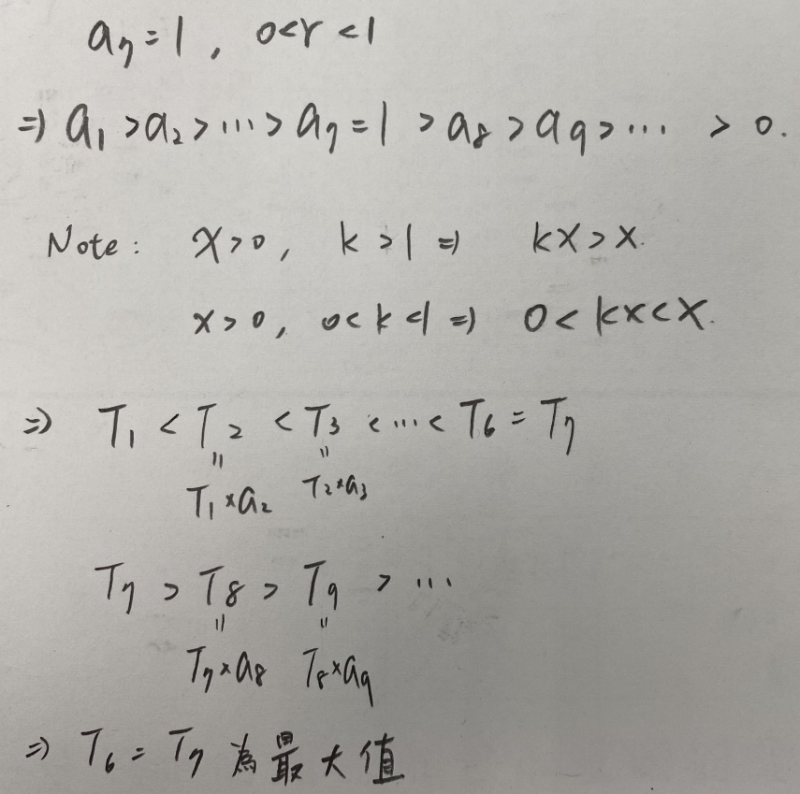 a₇ = 1 , 0<r<1
⇒ a₁ > a₂ > ⋯ > a₇ = 1 > a₈ > a₉ > ⋯ > 0.
Note : x > 0 , k > 1 ⇒ kx > x.
x > 0 , 0 < k < 1 ⇒ 0 < kx < x.
⇒ T₁ < T₂ < T₃ < ⋯ < T₆ = T₇
= =
T₁ × a₂ T₂ × a₃
T₇ > T₈ > T₉ > ⋯
= =
T₇ × a₈ T₈ × a₉
⇒ T₆ = T₇ 為最大值